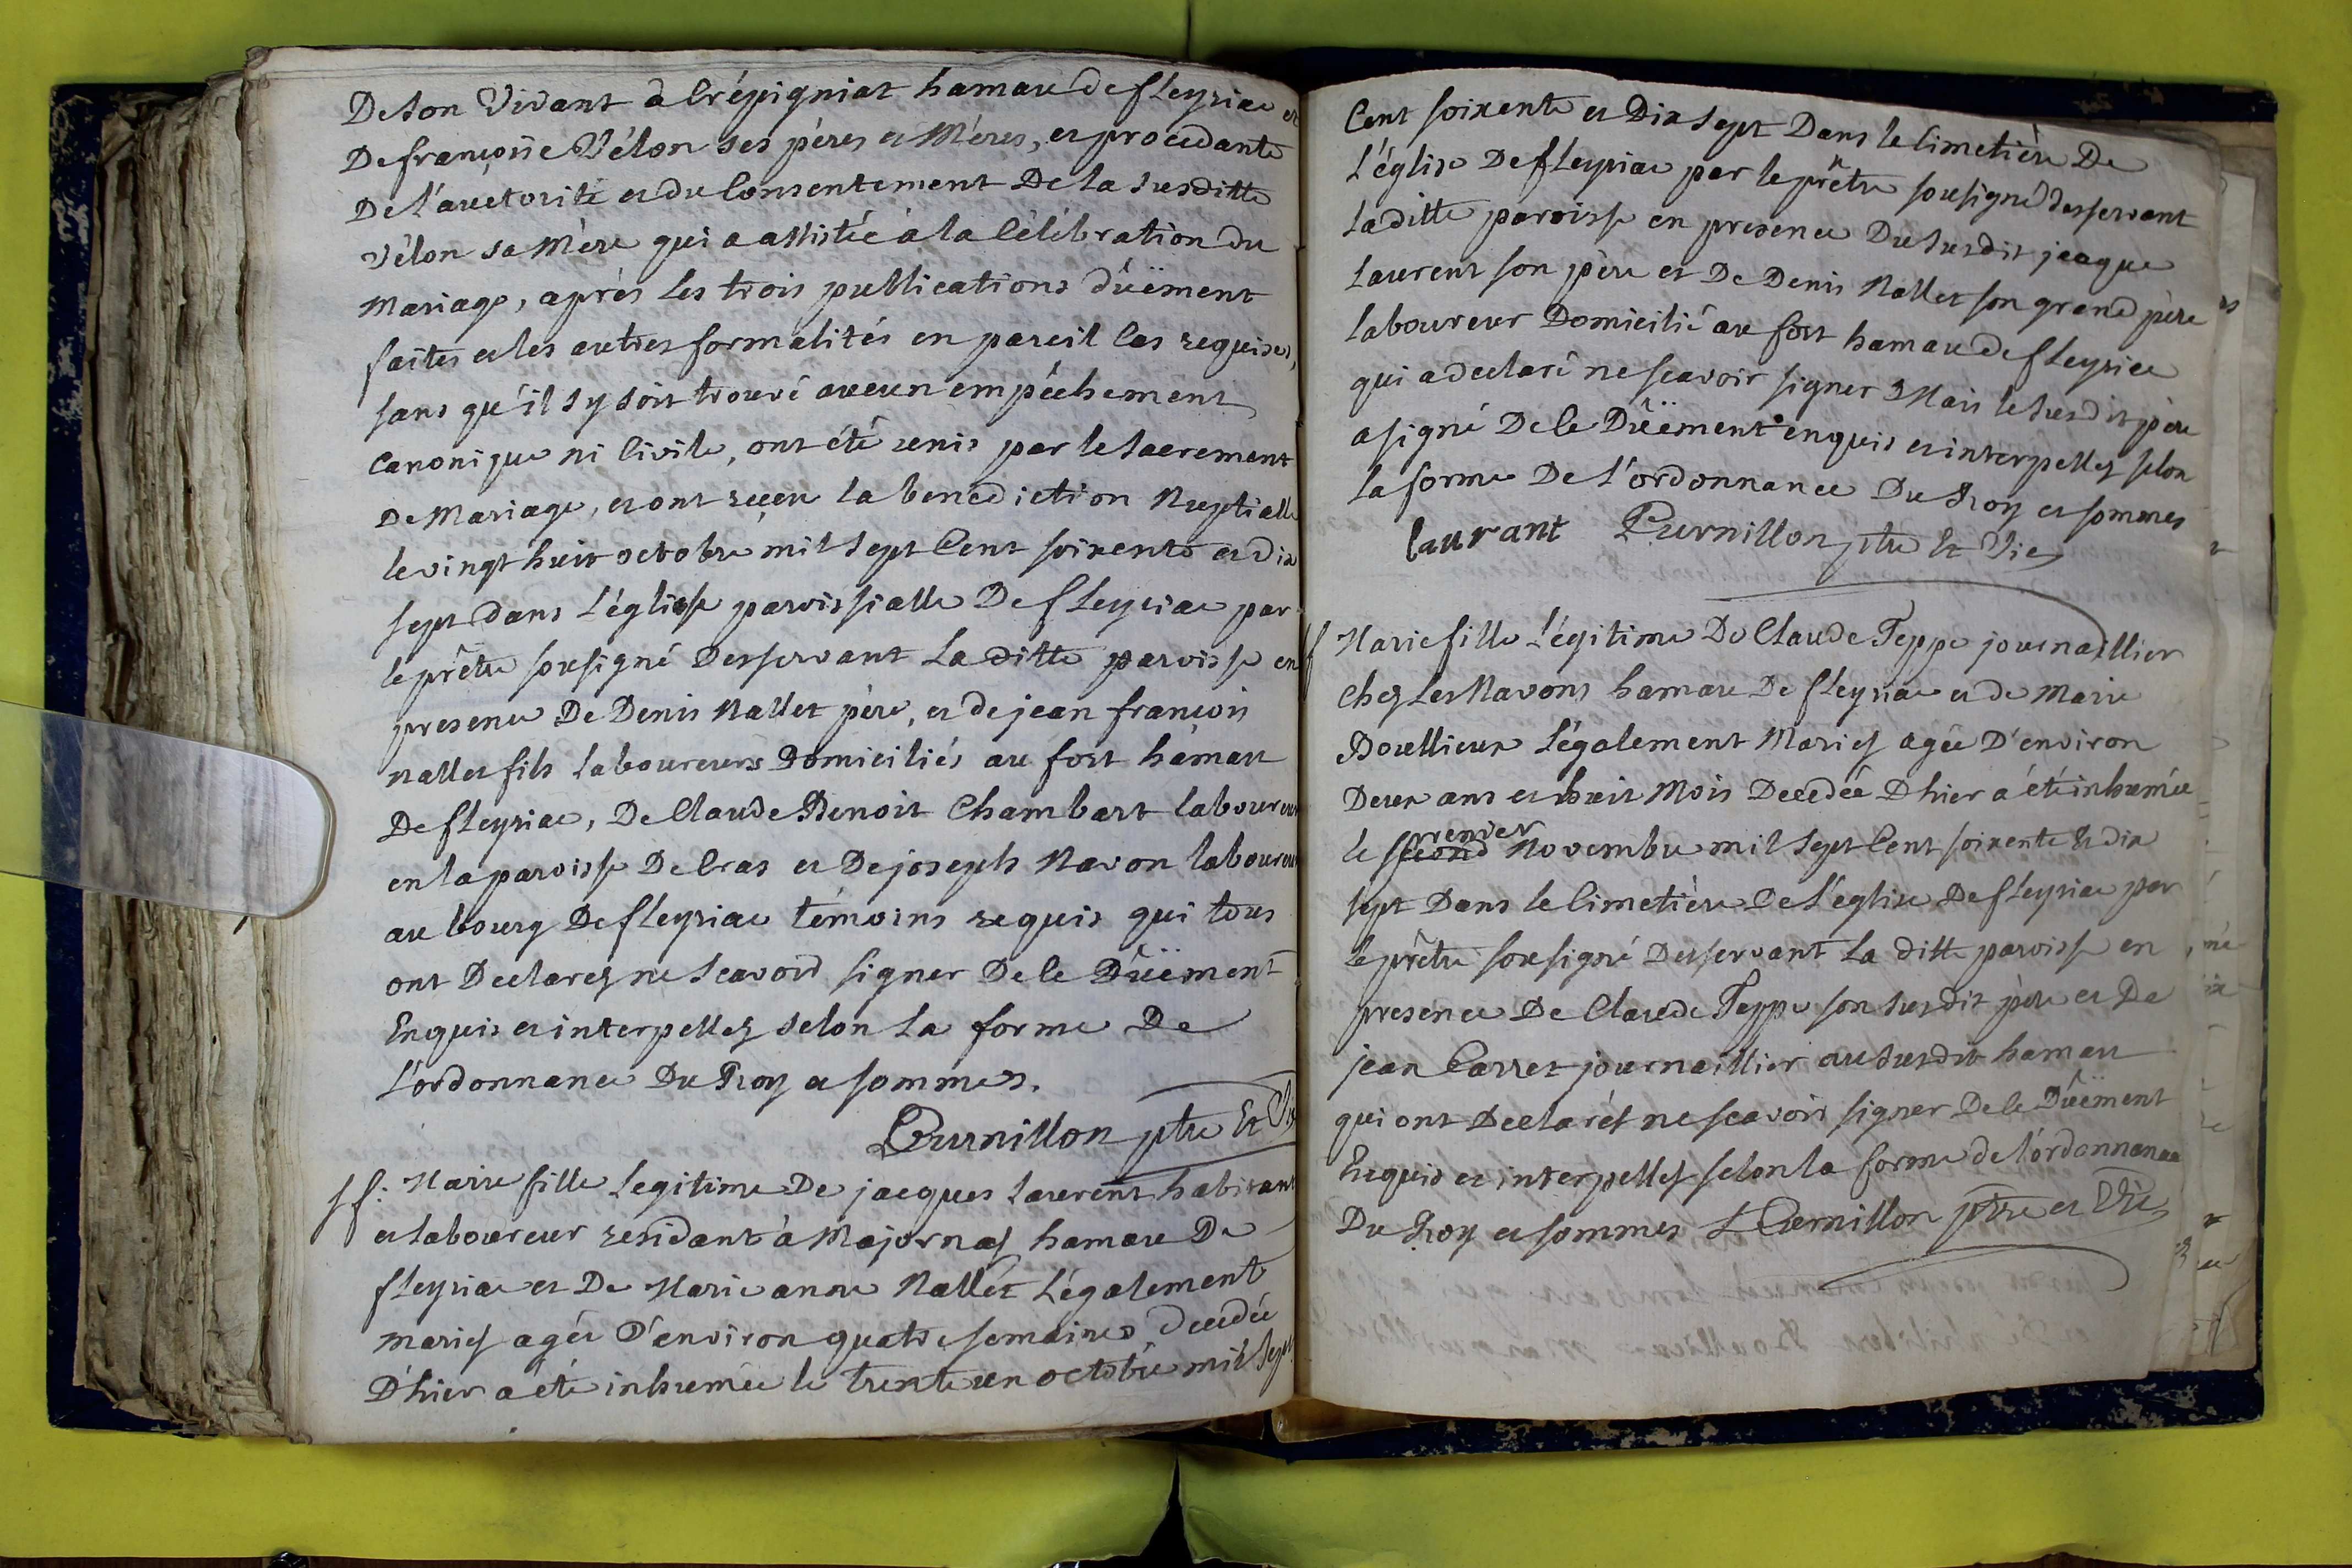 De son Vivant à Crépigniat hamau de fleyriac et
De françoise Vélon ses pères et Mères, et procedante
De l'auctorité et du Consentement De la susditte
vélon sa Mère qui a assistée à la Célébration du
Mariage, après les trois publications dûëment
faites et les autres formalités en pareil Cas requises,
sans qu'il s'y soit trouvé aucun empêchement
Canonique ni Civile, ont été unis par le sacrement
De Mariage, et ont reçeu la benediction Nuptialle
le vingt huit octobre mil sept Cent soixente et dix
sept dans L'église paroissialle De fleyriac par
le prêtre sousigné Desservant La ditte paroisse en
presence De Denis Nallet père, et de jean françois
nallet fils Laboureurs Domiciliés au fort hamau
De fleyriac, De Claude Benoit Chambart laboureur
en la paroisse De Cras et De joseph Navon laboureur
au bourg De fleyriac témoins requis qui tous
ont Declarez ne Scavoir signer De Ce Dûëment
Enquis et interpellez selon La forme De
L'ordonnance Du Roy et sommes.
Purnillon ptre Et Vic
sf. Marie fille Legitime De jacques Laurent habitant
et laboureur residant à Majornas hamau De
fleyriac et De Marie anne Nallet Légalement
mariés agée D'environ quatre semaines decedée
D'hier a été inhumée le trente un octobre mil sept
Cent soixente et Dix sept Dans le Cimetière De
L'église De fleyriac par le prêtre sousigné desservant
La ditte paroisse en presence Du susdit jacque
Laurent son père et De Denis Nallet son grand père
laboureur Domicilié au fort hamau de fleyriac
qui a declaré ne scavoir signer Mais le susdit père
a signé De Ce Dûëment enquis et interpellez selon
la forme De L'ordonnance Du Roy et sommes
laurant Purnillon ptre Et Vic
sf Marie fille Légitime De Claude Teppe journaillier
Chez Les Navons hamau De fleyriac et de Marie
Bouillieux Légalement Mariés agée D'environ
Deux ans et huit Mois Decedée D'hier a été inhumée
premier
le second Novembre mil sept Cent soixente Et dix
sept Dans le Cimetière De L'église De fleyriac par
le prêtre sousigné Desservant La ditte paroisse en
presence De Claude Teppe son susdit père et De
jean Carret journaillier au susdit hamau
qui ont Declarés ne scavoir signer De Ce Dûëment
Enquis et interpellez selon la forme de l'ordonnance
Du Roy et sommes Purnillon ptre et Vic